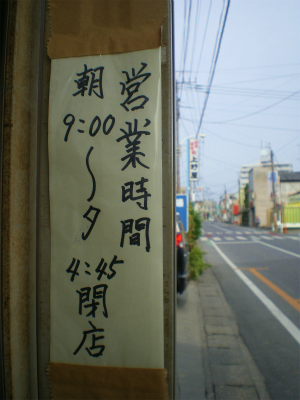 営業時間
朝9:00〜夕4:45閉店